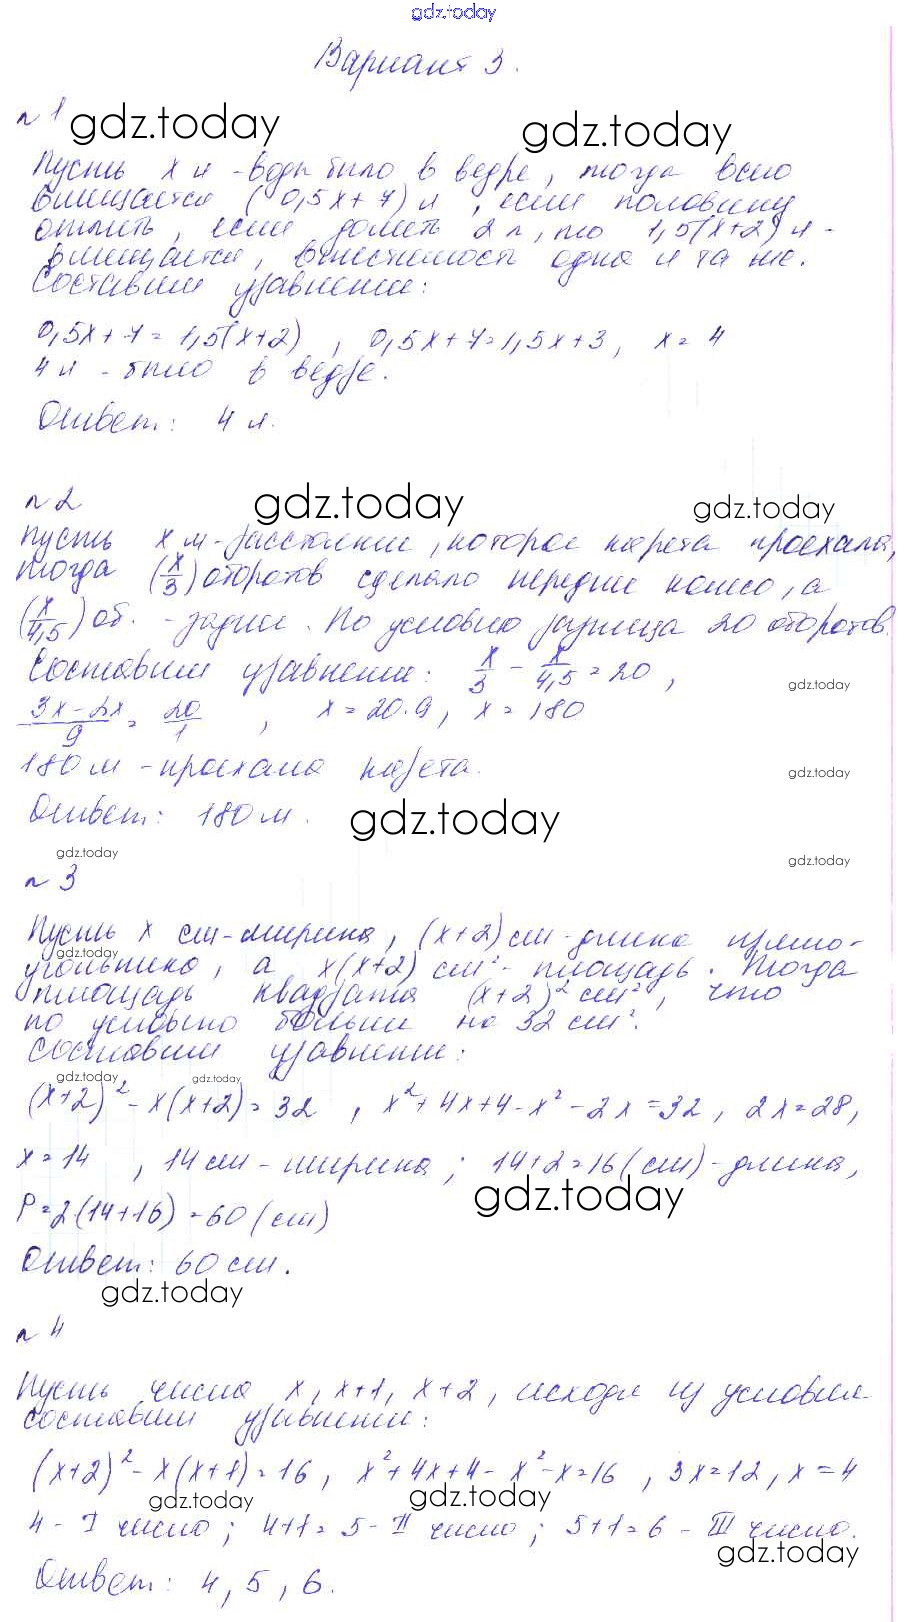 gdz.today
Вариант 3.
n 1
gdz.today
gdz.today
Пусть x л - воды было в ведре, тогда всего
вмещается (0,5x+7) л, если половину
отлить, если долить 2 л, то 1,5(x+2) л -
вмещается, вместимость одна и та же.
Составим уравнение:
0,5x+7=1,5(x+2), 0,5x+7=1,5x+3, x=4
4 л - было в ведре.
Ответ: 4 л.
n 2
gdz.today
gdz.today
Пусть x м - расстояние, которое карета проехала,
тогда (x/3) оборотов сделало переднее колесо, а
(x/4,5) об. - заднее. По условию разница 20 оборотов.
Составим уравнение: x/3 - x/4,5 = 20,
gdz.today
3x-2x/9 = 20/1, x=20·9, x=180
180 м - проехала карета.
gdz.today
Ответ: 180 м.
gdz.today
gdz.today
gdz.today
n 3
Пусть x см - ширина, (x+2) см - длина прямо-
gdz.today
угольника, а x(x+2) см² - площадь. Тогда
площадь квадрата (x+2)² см², что
по условию больше на 32 см².
Составим уравнение:
gdz.today
gdz.today
(x+2)²-x(x+2)=32, x²+4x+4-x²-2x=32, 2x=28,
x=14, 14 см - ширина; 14+2=16(см) - длина,
gdz.today
P=2·(14+16)=60(см)
Ответ: 60 см.
gdz.today
n 4
Пусть числа x, x+1, x+2, исходя из условия
составим уравнение:
(x+2)²-x(x+1)=16, x²+4x+4-x²-x=16, 3x=12, x=4
gdz.today
gdz.today
4 - I число; 4+1=5 - II число; 5+1=6 - III число.
gdz.today
Ответ: 4, 5, 6.